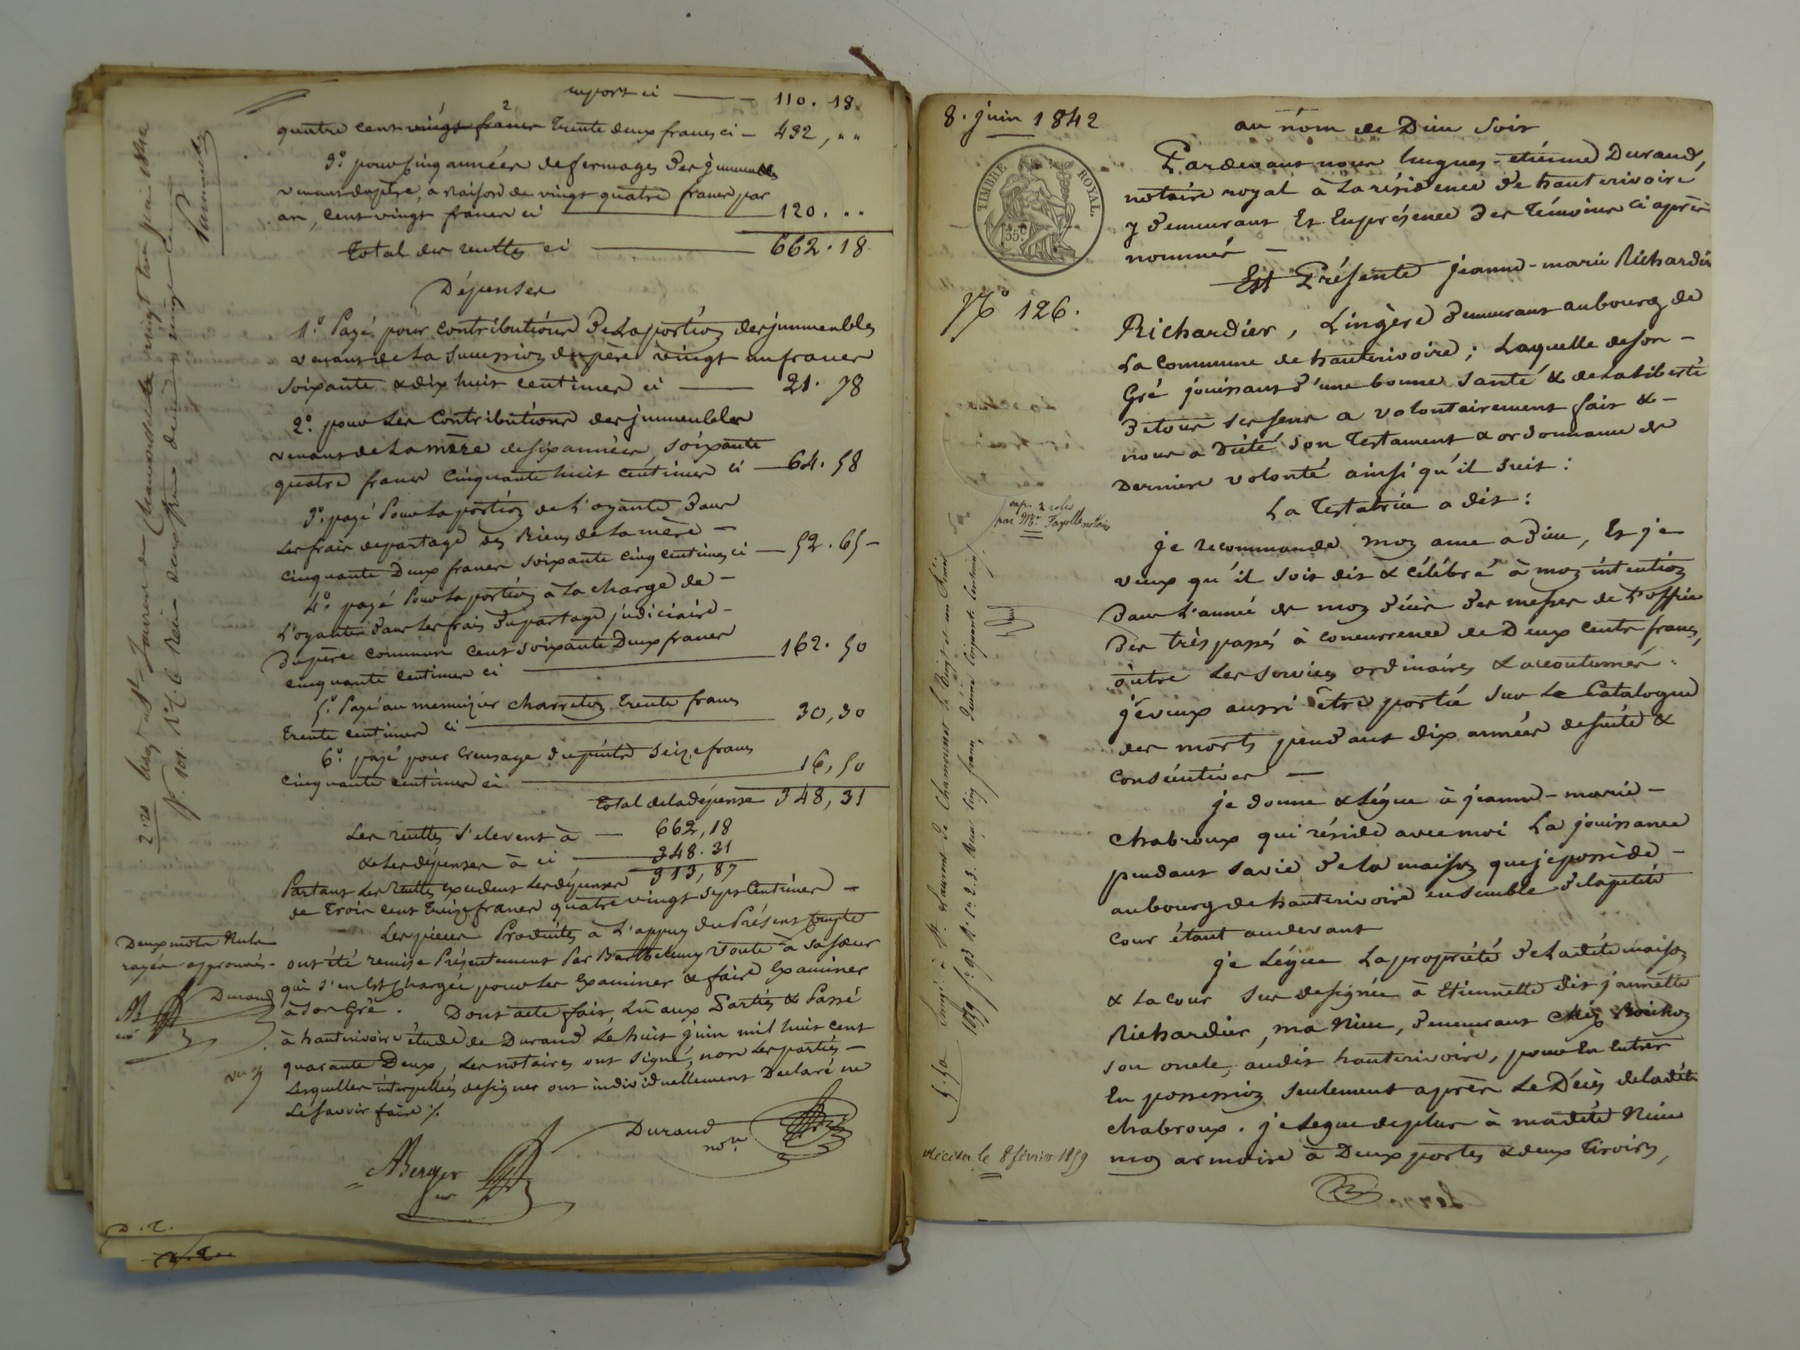 report ci — 110. 18.
quatre cent vingt francs trente deux francs ci — 432, "
3.º pour cinq années de fermages des immeubles
venant du père, à raison de vingt quatre francs par
an, cent vingt francs ci 120. ..
Total des recettes ci 662. 18
Dépenses
1.º Payé pour contributions de la portion des immeubles
venant de la succession du père vingt un francs
soixante & dix huit centimes ci — 21. 78
2.º pour les contributions des immeubles
venant de la mère de six années, soixante
quatre francs cinquante huit centimes ci — 64. 58
3.º payé pour la portion de l'oyante dans
les frais de partage des biens de la mère —
cinquante deux francs soixante cinq centimes ci — 52. 65 —
4.º payé pour la portion à la charge de —
l'oyante dans les frais du partage judiciaire —
du père commun cent soixante deux francs
cinquante centimes ci 162. 50
5.º Payé au menuisier charreton trente francs
trente centimes ci 30,30
6.º payé pour creusage du puits seize francs
cinquante centimes ci 16,50
Total de la dépense 348,31
Les recettes s'elevent à — 662,18
& les dépenses à ci 348. 31
Partant les recettes excedent les dépenses 313,87
de trois cent treize francs quatre vingt sept centimes —
Les pièces produites à l'appuy du présent compte
ont été remise présentement par Barthelemy Voute à sa sœur
qui s'en est chargée pour les examiner & faire examiner
à son gré. Dont acte fait, lu aux parties & passé
à hauterivoire étude de Durand le huit juin mil huit cent
quarante deux, les notaires ont signé, non les parties —
lesquelles interpellées de signer ont individuellement declaré ne
le savoir faire ./.
Deux mots nuls
rayés approuvés -
Durand
Durand
nore
ABerger
D. R.
8. juin 1842
TIMBRE ROYAL.
35c
Nº 126.
au nom de Dieu soit
Pardevant nous hugues-etienne Durand,
notaire royal à la résidence de hauterivoire
y demeurant et en présence des témoins ci après
nommés —
Est Présente jeanne-marie Richardier
Richardier, Lingère demeurant au bourg de
la commune de hauterivoire; laquelle de son —
gré jouissant d'une bonne santé & de la liberté
de tous ses sens a volontairement fait & —
nous a dicté son testament & ordonnance de
derniere volonté ainsi qu'il suit:
La Testatrice a dit:
je recommande mon ame a Dieu, et je
veux qu'il soit dit & célébré à mon intention
dans l'année de mon décès des messes de l'office
des trèspassés à concurrence de deux cents francs,
outre les services ordinaires & accoutumés.
je veux aussi être portée sur le Catalogue
des morts pendant dix années de suite &
consécutives —
je donne & lègue à jeanne-marie —
chabroux qui réside avec moi la jouissance
pendant sa vie de la maison que je possède —
au bourg de hauterivoire ensemble de la petite
cour étant au devant
je Lègue la propriété de la dite maison
& la cour sus designée à Etiennette dit jannette
Richardier, ma Niece, demeurant chez
son oncle, audit hauterivoire, pour en entrer
en possession seulement après le Décès de la dite
chabroux. je legue de plus à ma dite Niece
mon armoire à deux portes & deux tiroirs,
exp. 2 roles
par Me. Fayolle notaire
décédée le 8 février 1859